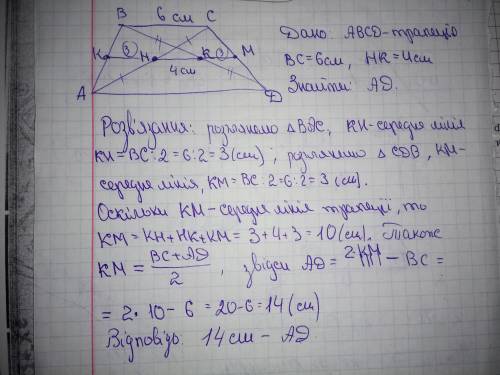 B 6 см C
K 3 H K 3 M
4 см
A D
Дано: ABCD-трапеція
BC=6см, HK=4см
Знайти: AD.
Розв'язання: розглянемо △BDC, KH-середня лінія
KH=BC:2=6:2=3(см); розглянемо △CDB, KM-
середня лінія, KM=BC:2=6:2=3(см).
Оскільки KM-середня лінія трапеції, то
KM=KH+HK+KM=3+4+3=10(см). Також
KM=\frac{BC+AD}{2}, звідси AD=2·KM-BC=
=2·10-6=20-6=14(см)
Відповідь: 14см-AD